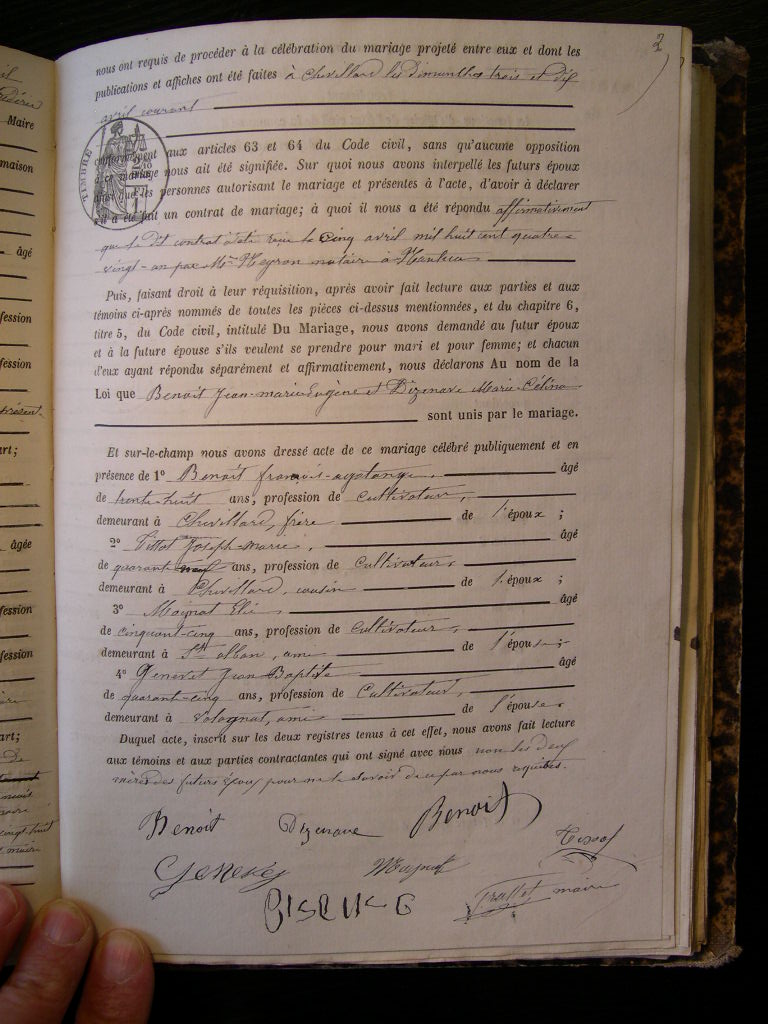 2
nous ont requis de procéder à la célébration du mariage projeté entre eux et dont les
publications et affiches ont été faites à Chevillard les dimanches trois et dix
avril courant
conformément aux articles 63 et 64 du Code civil, sans qu'aucune opposition
à ce mariage nous ait été signifiée. Sur quoi nous avons interpellé les futurs époux
ainsi que les personnes autorisant le mariage et présentes à l'acte, d'avoir à déclarer
s'il a été fait un contrat de mariage; à quoi il nous a été répondu affirmativement
que le dit contrat a été reçu le cinq avril mil huit cent quatre-
vingt-un par Me notaire à
Puis, faisant droit à leur réquisition, après avoir fait lecture aux parties et aux
témoins ci-après nommés de toutes les pièces ci-dessus mentionnées, et du chapitre 6,
titre 5, du Code civil, intitulé Du Mariage, nous avons demandé au futur époux
et à la future épouse s'ils veulent se prendre pour mari et pour femme; et chacun
d'eux ayant répondu séparément et affirmativement, nous déclarons Au nom de la
Loi que Benoit Jean-marie Eugène et Dizenave Marie-Célina
sont unis par le mariage.
Et sur-le-champ nous avons dressé acte de ce mariage célébré publiquement et en
présence de 1° Benoit françois âgé
de trente-huit ans, profession de Cultivateur,
demeurant à Chevillard, frère de l'époux ;
2° Tissot Joseph-marie, âgé
de quarant ans, profession de Cultivateur,
demeurant à Chevillard, cousin de l'époux ;
3° Mognat Elie âgé
de cinquant-cinq ans, profession de Cultivateur,
demeurant à St alban, ami de l'épouse ;
4° Genevet Jean Baptiste âgé
de quarant-cinq ans, profession de Cultivateur,
demeurant à Volognat, ami de l'épouse.
Duquel acte, inscrit sur les deux registres tenus à cet effet, nous avons fait lecture
aux témoins et aux parties contractantes qui ont signé avec nous non les deux
mères des futurs époux pour ne le savoir de ce par nous requises.
Benoit Dizenave Benoit
Tissot
Genevey
maire
TIMBRE